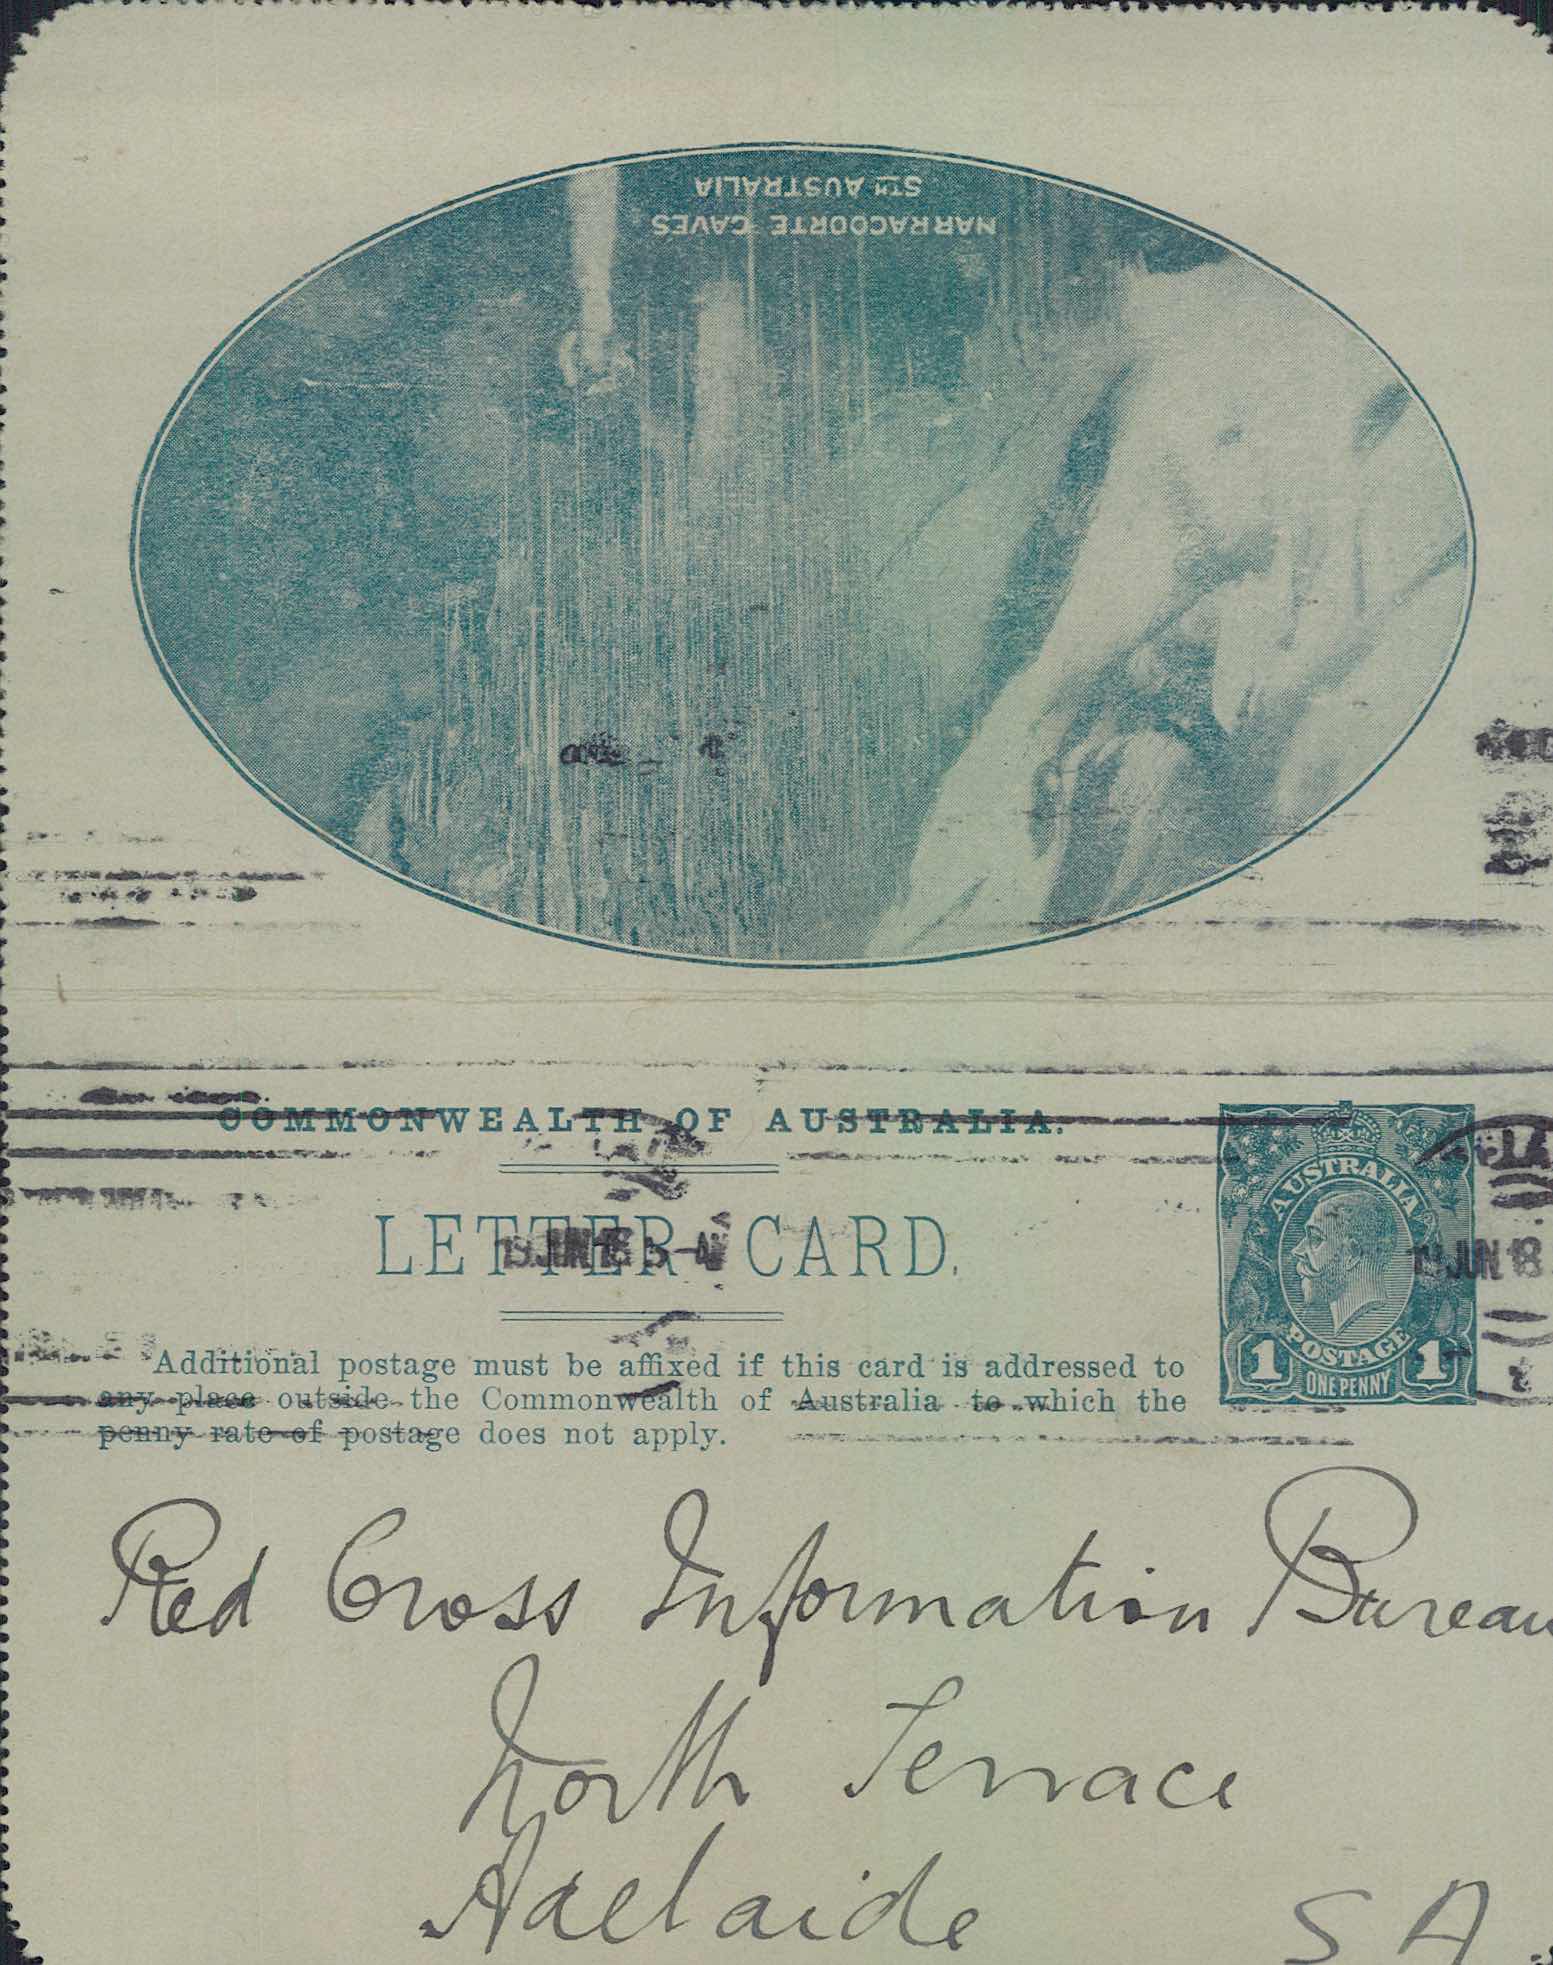 NARRACOORTE CAVES
STH AUSTRALIA
COMMONWEALTH OF AUSTRALIA.
LETTER CARD.
19 JUN 18
Additional postage must be affixed if this card is addressed to
any place outside the Commonwealth of Australia to which the
penny rate of postage does not apply.
AUSTRALIA
POSTAGE
1 1
ONE PENNY
19 JUN 18
Red Cross Information Bureau
North Terrace
Adelaide S A.